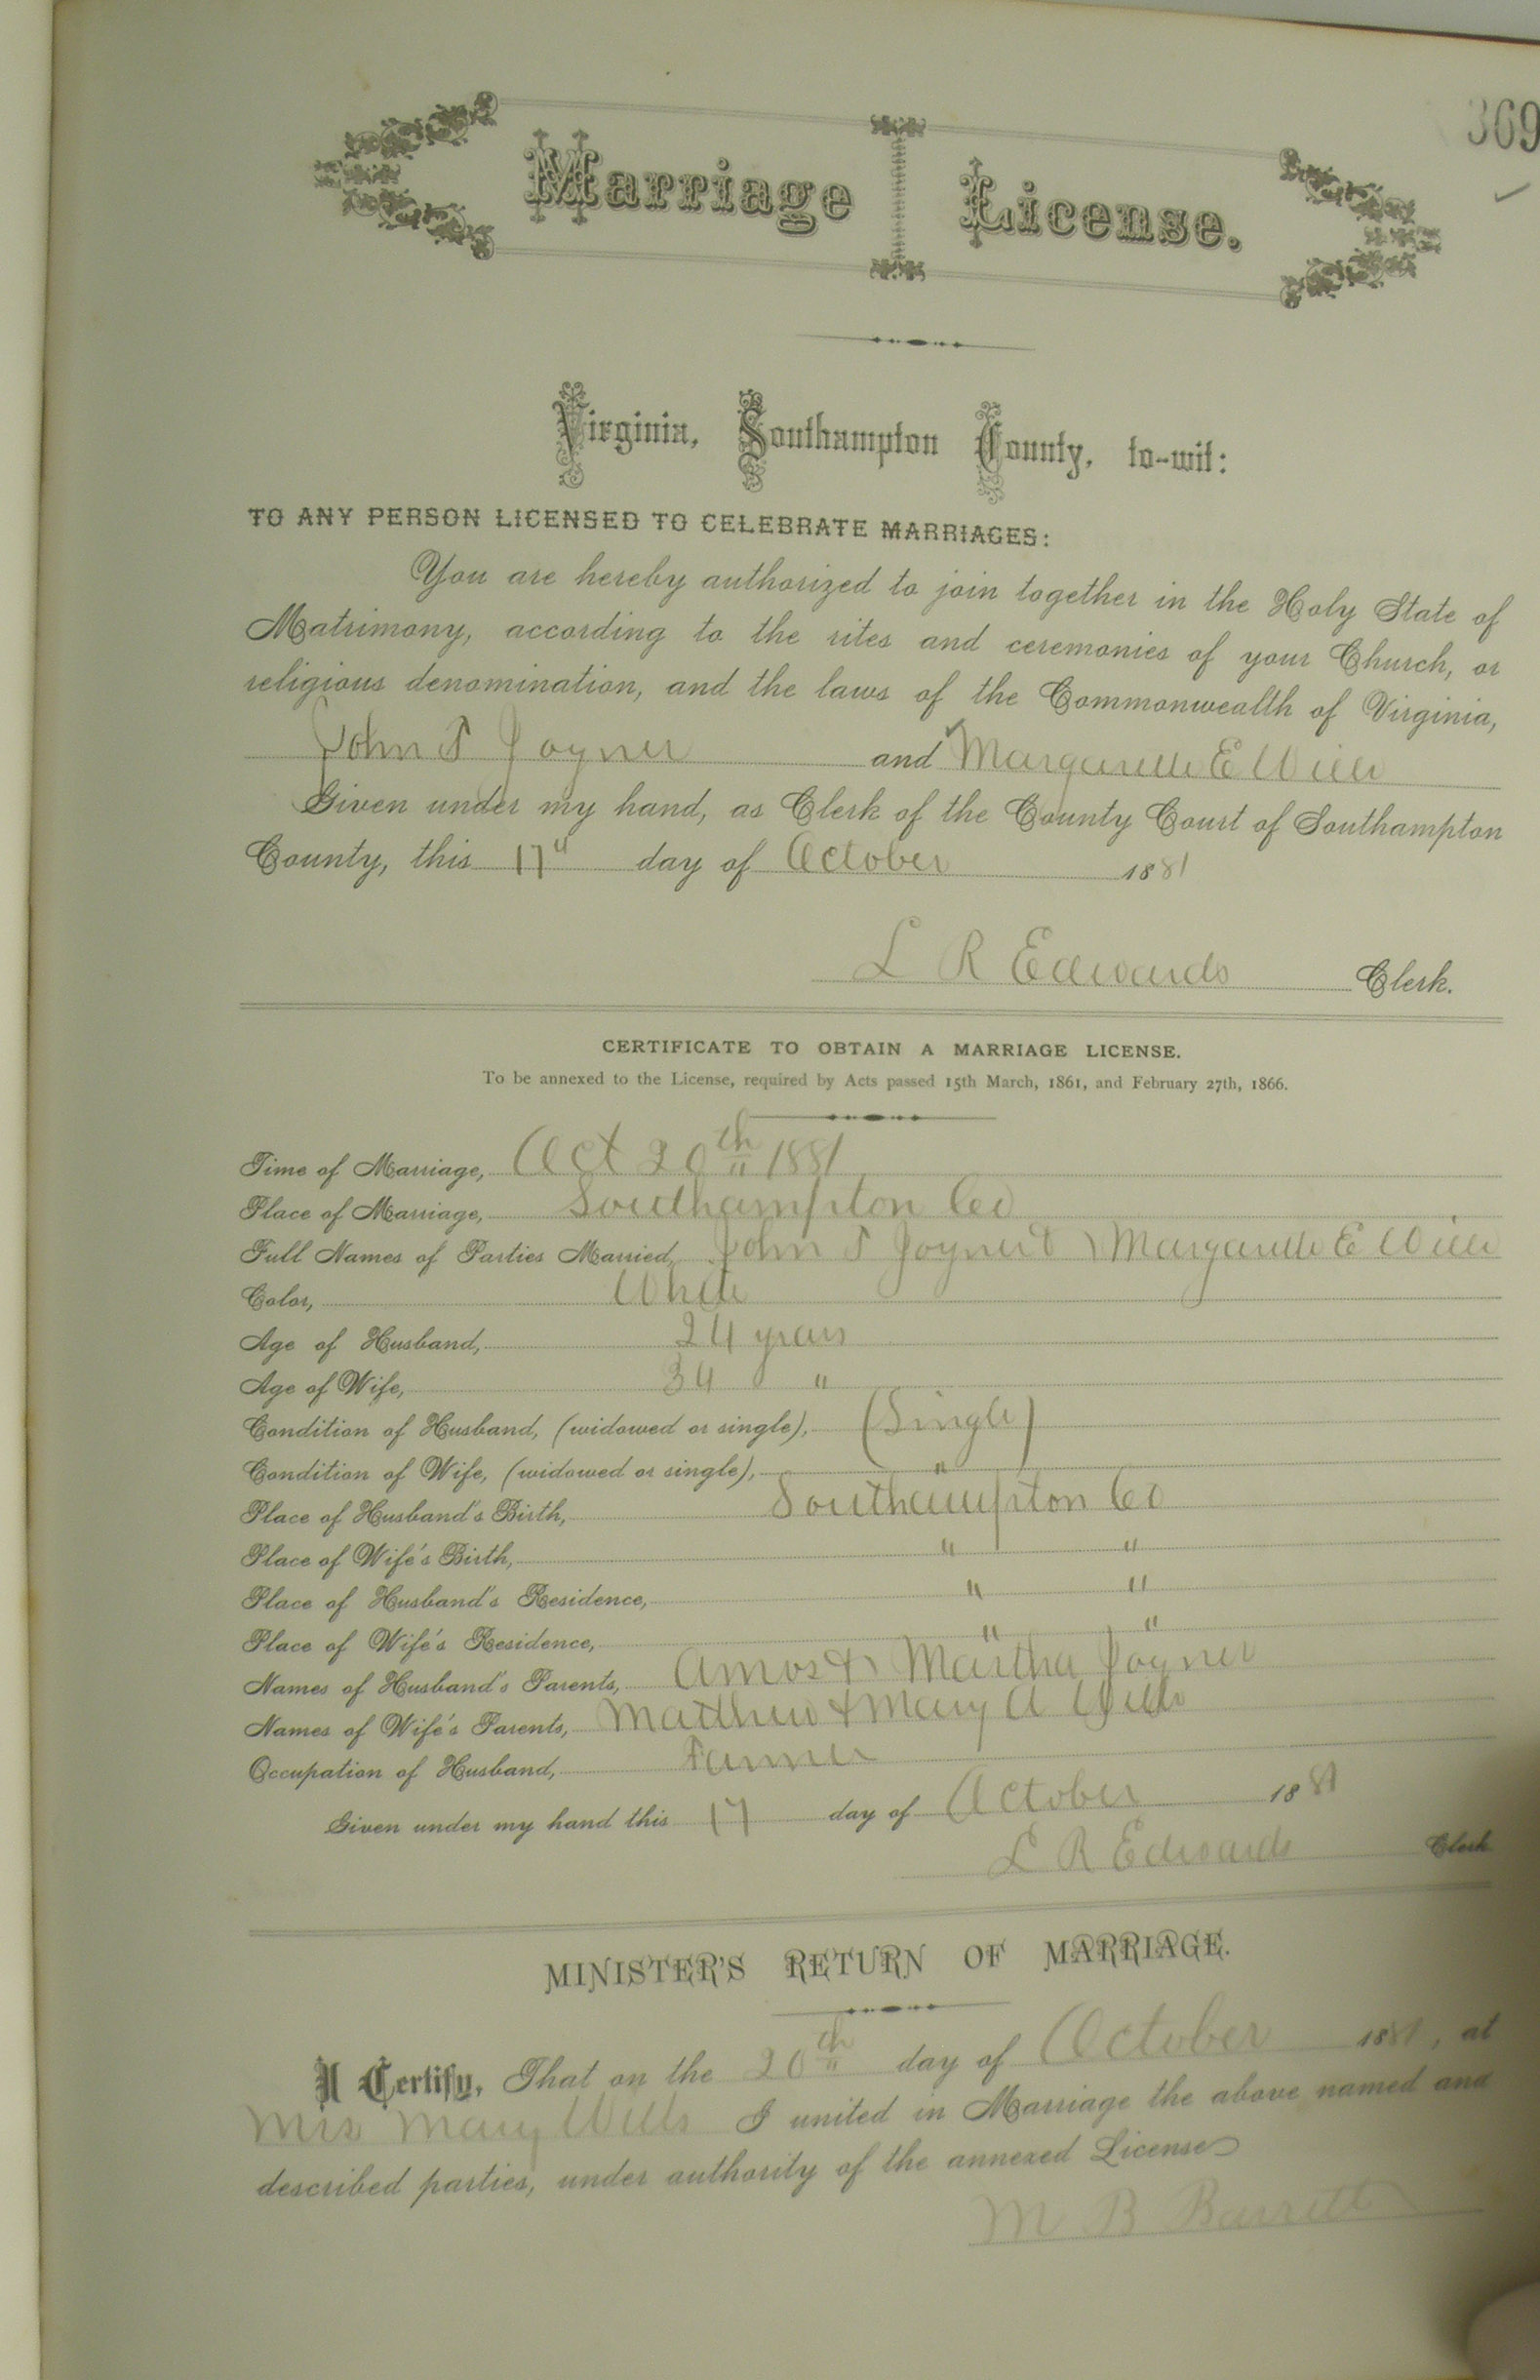 369
Marriage License.
Virginia, Southampton County, to-wit:
TO ANY PERSON LICENSED TO CELEBRATE MARRIAGES:
You are hereby authorized to join together in the Holy State of
Matrimony, according to the rites and ceremonies of your Church, or
religious denomination, and the laws of the Commonwealth of Virginia,
John T Joyner and Margarette E Wills
Given under my hand, as Clerk of the County Court of Southampton
County, this 17" day of October 1881
L R Edwards Clerk.
CERTIFICATE TO OBTAIN A MARRIAGE LICENSE.
To be annexed to the License, required by Acts passed 15th March, 1861, and February 27th, 1866.
Time of Marriage, Oct 20th 1881
Place of Marriage, Southampton Co
Full Names of Parties Married, John T Joyner & Margarette E Wills
Color, White
Age of Husband, 24 years
Age of Wife, 34 "
Condition of Husband, (widowed or single), (Single)
Condition of Wife, (widowed or single), "
Place of Husband's Birth, Southampton Co
Place of Wife's Birth, " "
Place of Husband's Residence, " "
Place of Wife's Residence, " "
Names of Husband's Parents, Amos & Martha Joyner
Names of Wife's Parents, Matthew & Mary A Wills
Occupation of Husband, Farmer
Given under my hand this 17 day of October 1881
L R Edwards Clerk
MINISTER'S RETURN OF MARRIAGE.
I Certify, That on the 20th day of October 1881, at
Mrs Mary Wills I united in Marriage the above named and
described parties, under authority of the annexed License
M B Barrett